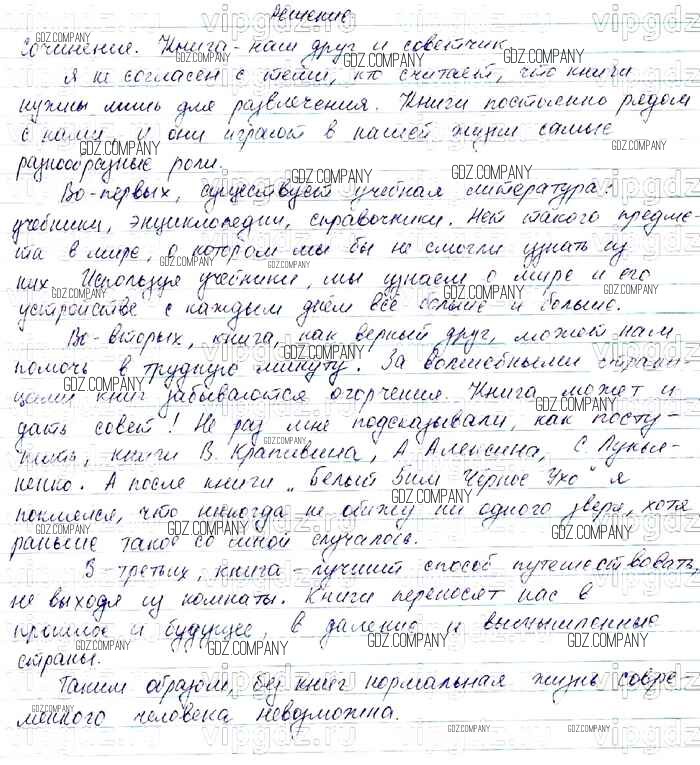 Решение
Сочинение. Книга - наш друг и советчик
Я не согласен с теми, кто считает, что книги
нужны лишь для развлечения. Книги постоянно рядом
с нами, и они играют в нашей жизни самые
разнообразные роли.
Во-первых, существует учебная литература:
учебники, энциклопедии, справочники. Нет такого предме-
та в мире, о котором мы бы не смогли узнать из
них. Используя учебники, мы узнаем о мире и его
устройстве с каждым днём всё больше и больше.
Во-вторых, книга, как верный друг, может нам
помочь в трудную минуту. За волшебными страни-
цами книг забываются огорчения. Книга может и
дать совет! Не раз мне подсказывали, как посту-
пить, книги В. Крапивина, А. Алексина, С. Лукья-
ненко. А после книги „Белый Бим Чёрное Ухо" я
поклялся, что никогда не обижу ни одного зверя, хотя
раньше такое со мной случалось.
В-третьих, книга - лучший способ путешествовать,
не выходя из комнаты. Книги переносят нас в
прошлое и будущее, в далекие и вымышленные
страны.
Таким образом, без книг нормальная жизнь совре-
менного человека невозможна.